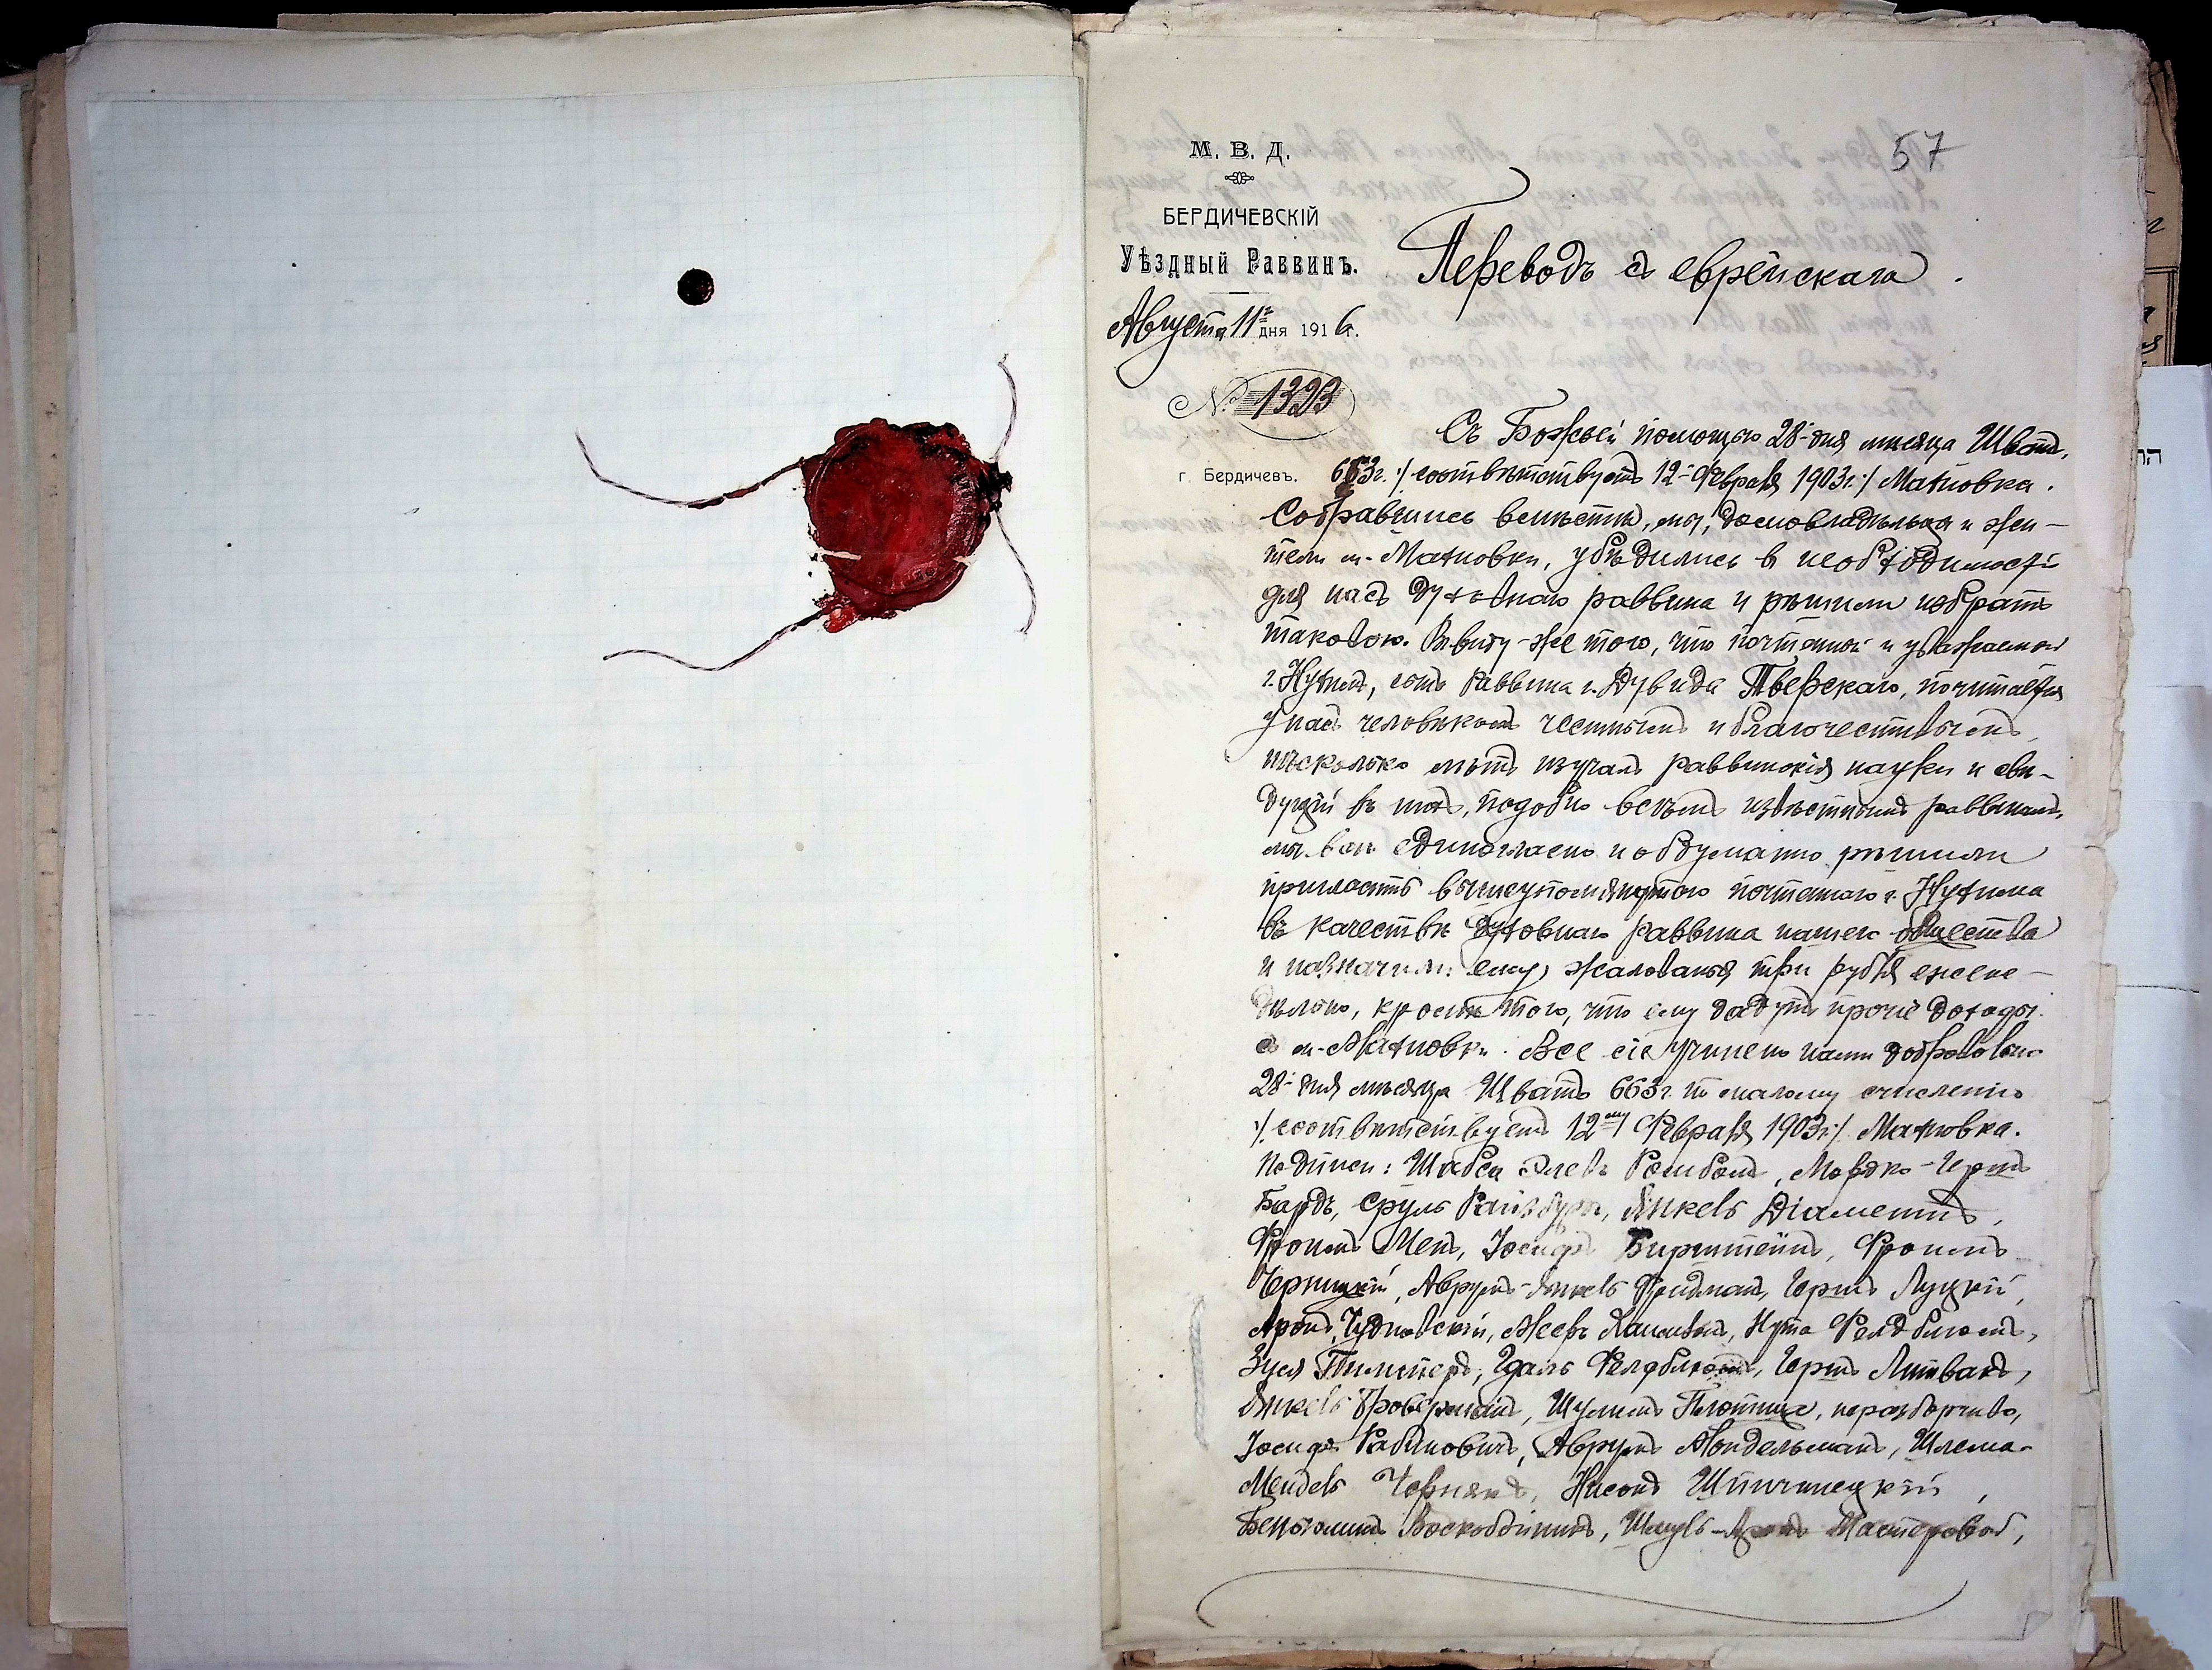 57
М. В. Д.
БЕРДИЧЕВСКІЙ
Уѣздный Раввинъ.
Августа 11го дня 1916 г.
№ 1323
г. Бердичевъ.
Переводъ съ еврейскаго.
Съ Божьей помощью 28го дня мѣсяца Шватъ,
663г. /: соотвѣтствуетъ 12го Февраля 1903г. :/ Махновка.
Собравшись вмѣстѣ, мы, домовладѣльцы и жи-
тели м. Махновки, убѣдились в необходимости
для насъ духовнаго раввина и рѣшили избрать
такового. Ввиду-же того, что почтенной и уважаемой
г. Нухимъ, сынъ Раввина г. Дувида Тверскаго, почитается
у насъ человѣкомъ честнымъ и благочестивымъ,
нѣсколько лѣтъ изучалъ раввинскія науки и све-
дущій въ нихъ, подобно всѣмъ извѣстнымъ раввинамъ,
мы все единогласно и обдуманно рѣшили
пригласить вышеупомянутаго почтеннаго г. Нухима
въ качествѣ духовнаго раввина нашего общества
и назначили ему жалованья три рубля ежене-
дѣльно, кромѣ того, что ему дадутъ прочіе доходы
съ м. Махновки. Все сіе учинено нами добровольно
28го дня мѣсяца Шватъ 663г. по малому счисленію
/: соотвѣтствуетъ 12му Февраля 1903г. :/ Махновка.
Подписи: Шабса Ромбомъ, Мордко-Гершъ
Бардъ, Сруль Райзбург, Янкель Діаментъ,
Фроимъ Менъ, Іосифъ Бирштейнъ, Фроимъ
Черницкій, Аврумъ-Янкель Фридманъ, Гершъ Луцкій,
Аронъ Чудновскій, Нута Фелдблюмъ,
Зуся Гдаль Фелдблюмъ, Гершъ Литвакъ,
Янкель Броверманъ, Шулимъ Плотник, неразборчиво,
Іосифъ Рабиновичъ, Аврумъ Мондельманъ, Шлема-
Мендель Чернякъ, Нисонъ Шпичинецкій,
Беньюминъ Воскобойникъ, Шмуль-Аронъ Мастеровой,